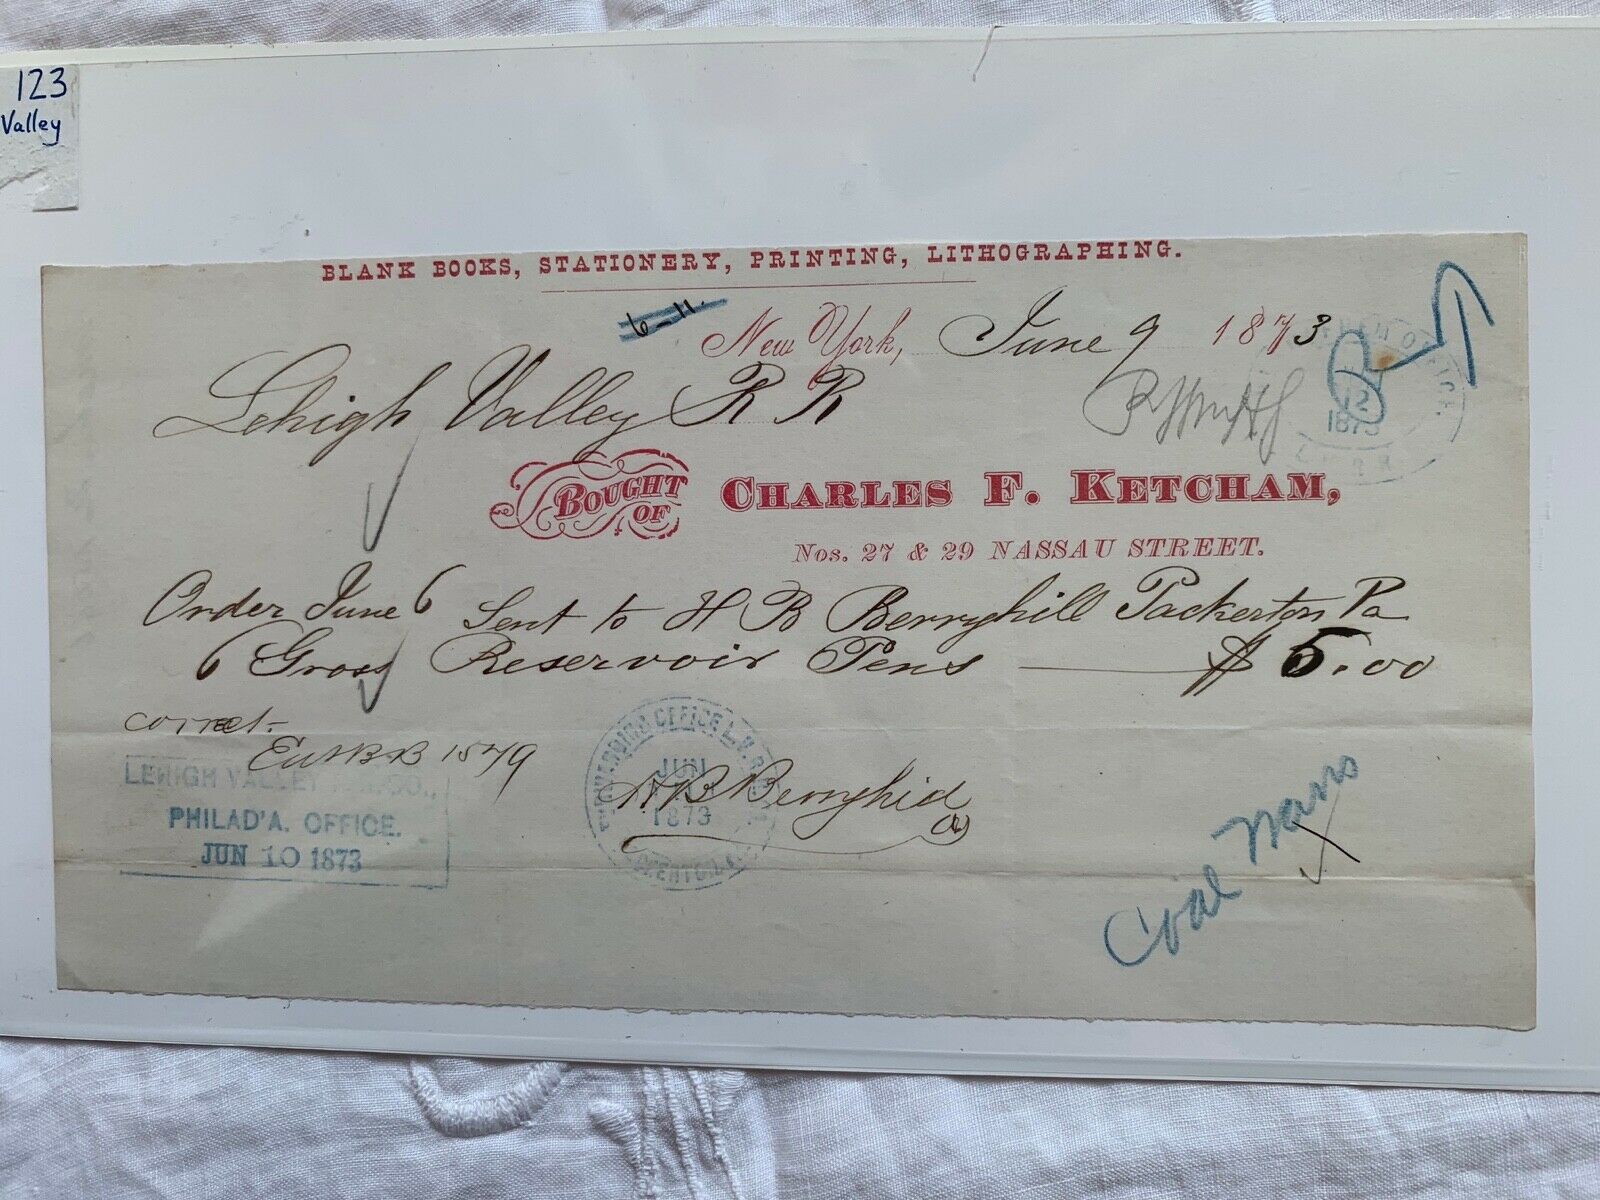 123
Valley
BLANK BOOKS, STATIONERY, PRINTING, LITHOGRAPHING.
6-11.
New York, June 9 1873
Lehigh Valley R R
BOUGHT OF CHARLES F. KETCHAM,
Nos. 27 & 29 NASSAU STREET.
Order June 6 Sent to H B Berryhill Packerton Pa
6 Gross Reservoir Pens $ 5.00
correct
LEHIGH VALLEY R.R. CO.,
PHILAD'A. OFFICE.
JUN 10 1873
OFFICE L.V.R.R.
JUN
1873
HB Berryhill
OFFICE.
12
1873
Coal